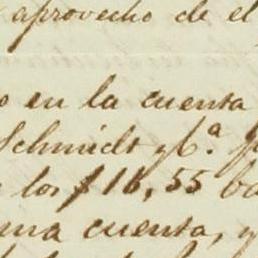 aprovecho de el
o en la cuenta
Schmidt y C.ª
los $16,55
una cuenta, y